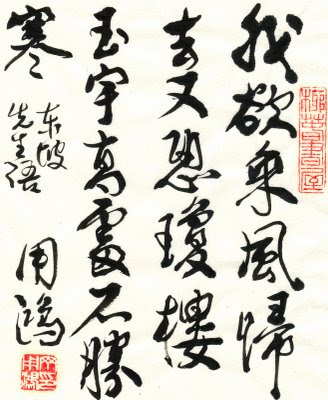 我欲乘風歸
去又恐瓊樓
玉宇高處不勝
寒
东坡
先生語
用鴻